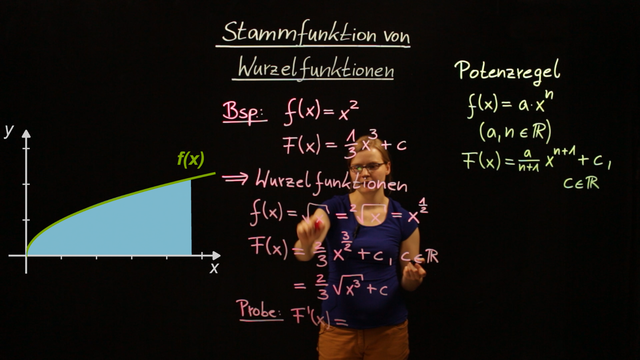 Stammfunktion von
Wurzelfunktionen
Bsp: f(x) = x²
F(x) = 1/3 x³ + c
⇒ Wurzelfunktionen
f(x) = √x = ²√x = x^(1/2)
F(x) = 2/3 x^(3/2) + c, c ∈ ℝ
= 2/3 √x³ + c
Probe: F'(x) =
Potenzregel
f(x) = a · xⁿ
(a, n ∈ ℝ)
F(x) = a/(n+1) x^(n+1) + c,
c ∈ ℝ
y
f(x)
x